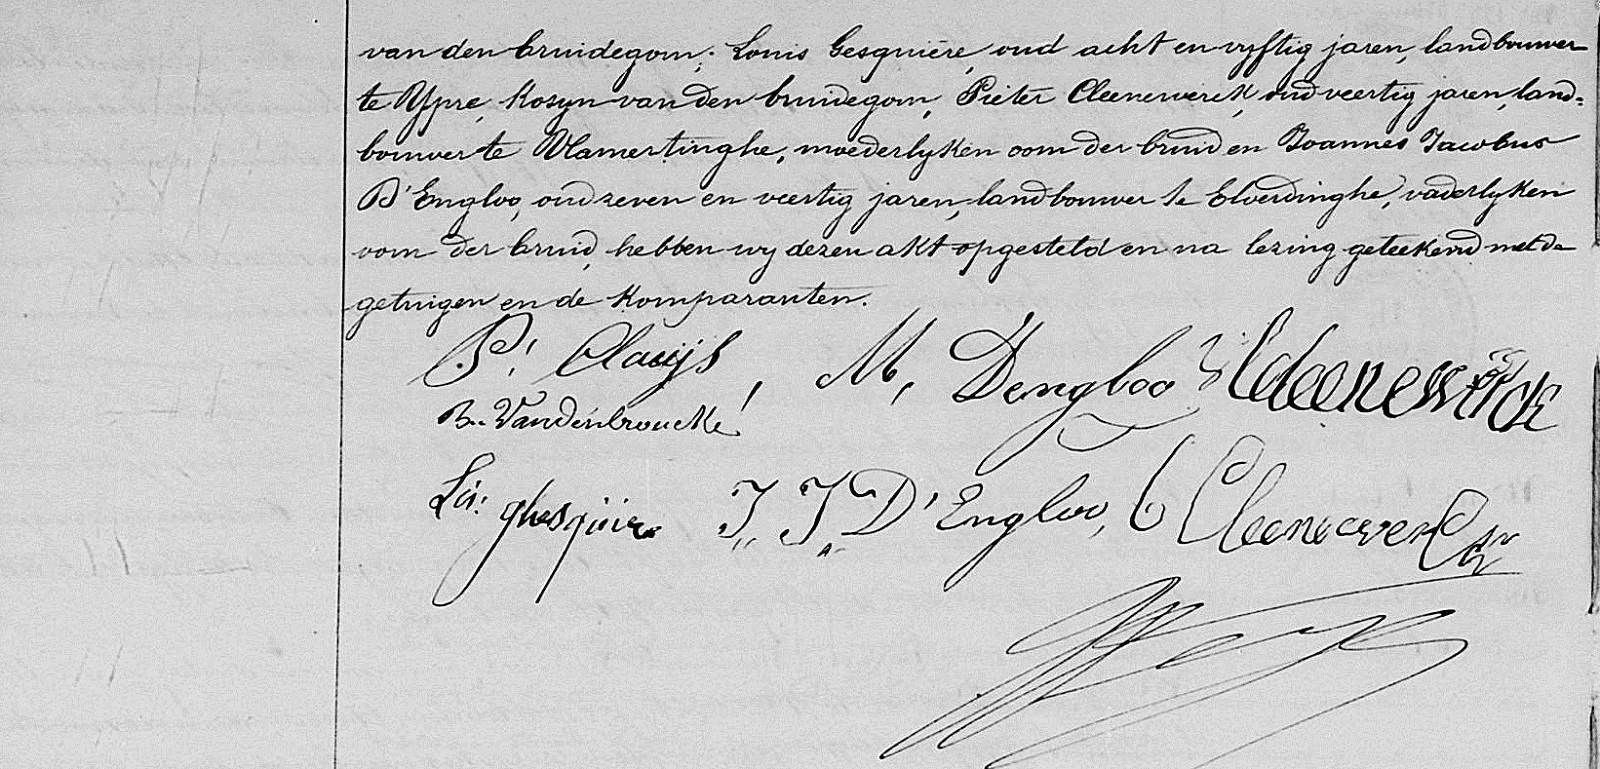 van den bruidegom; Louis Gesquière, oud acht en vyftig jaren, landbouwer
te Ypre, Kosyn van den bruidegom, Pieter Cleenewerck, oud veertig jaren, land=
bouwer te Vlamertinghe, moederlyken oom der bruid en Joannes Jacobus
D'Engloo, oud zeven en veertig jaren, landbouwer te Elverdinghe, vaderlyken
oom der bruid, hebben wy dezen akt opgesteld en na lezing geteekend met de
getuigen en de komparanten.
P! Clauijs, M, Dengloo
B. Vandenbroucke!
Ls: ghesquire J J D'Engloo, Cleenewerck